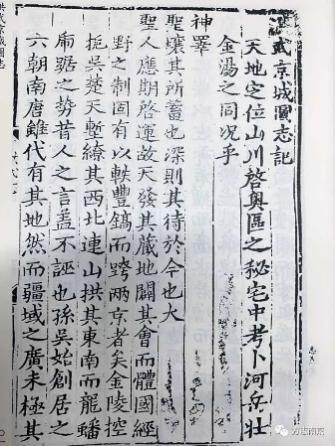 洪武京城圖志記
天地定位山川啓奧區之秘宅中考卜河岳壯
金湯之固況乎
神睪
聖壤其所蓄也深則其待於今也大
聖人應期啓運故天發其藏地闢其會而體國經
野之制固有以軼豐鎬而跨兩京者矣金陵控
扼吳楚天塹繚其西北連山拱其東南而龍蟠
虎踞之勢昔人之言盖不誣也孫吳始創居之
六朝南唐雖代有其地然而疆域之廣未極其
洪武京城圖志
方志南京